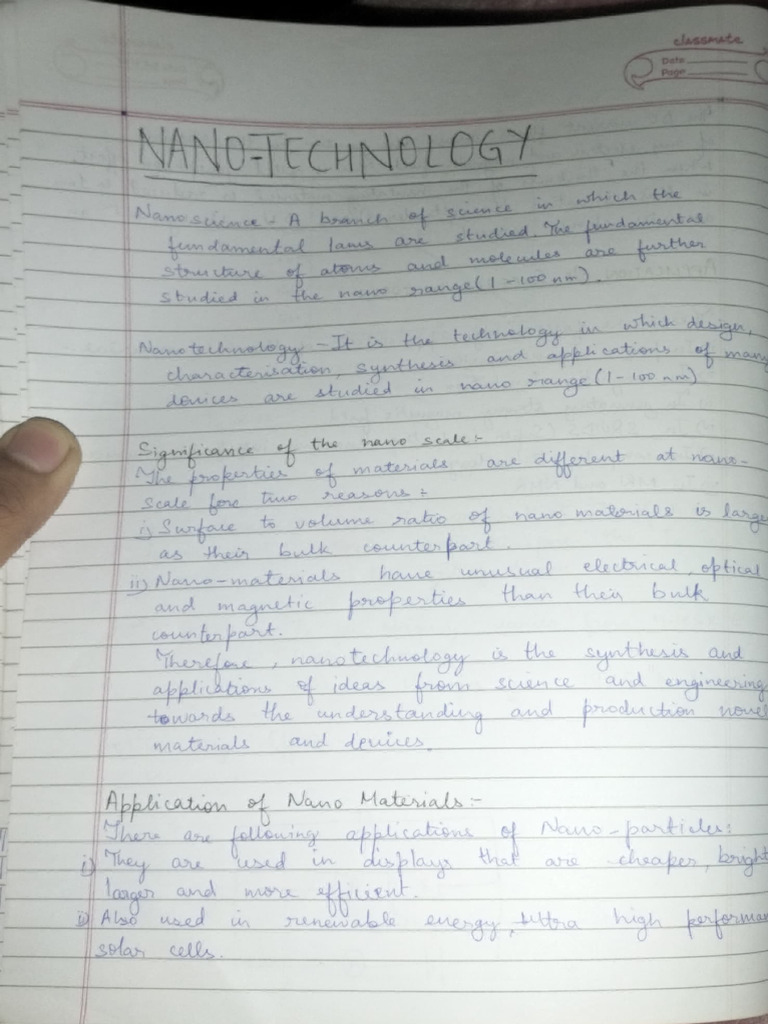 classmate
Date
Page
NANO-TECHNOLOGY
Nanoscience - A branch of science in which the
fundamental laws are studied. The fundamental
structure of atoms and molecules are further
studied in the nano range (1-100 nm).
Nanotechnology - It is the technology in which design,
characterisation, synthesis and applications of many
devices are studied in nano range (1-100 nm)
Significance of the nano scale:-
The properties of materials are different at nano-
scale fore two reasons:
i) Surface to volume ratio of nano materials is large
as their bulk counterpart.
ii) Nano-materials have unusual electrical, optical
and magnetic properties than their bulk
counterpart.
Therefore, nanotechnology is the synthesis and
applications of ideas from science and engineering
towards the understanding and production novel
materials and devices.
Application of Nano Materials:-
There are following applications of Nano-particles:
i) They are used in displays that are cheaper, bright
larger and more efficient.
ii) Also used in renewable energy, Ultra high performan
solar cells.